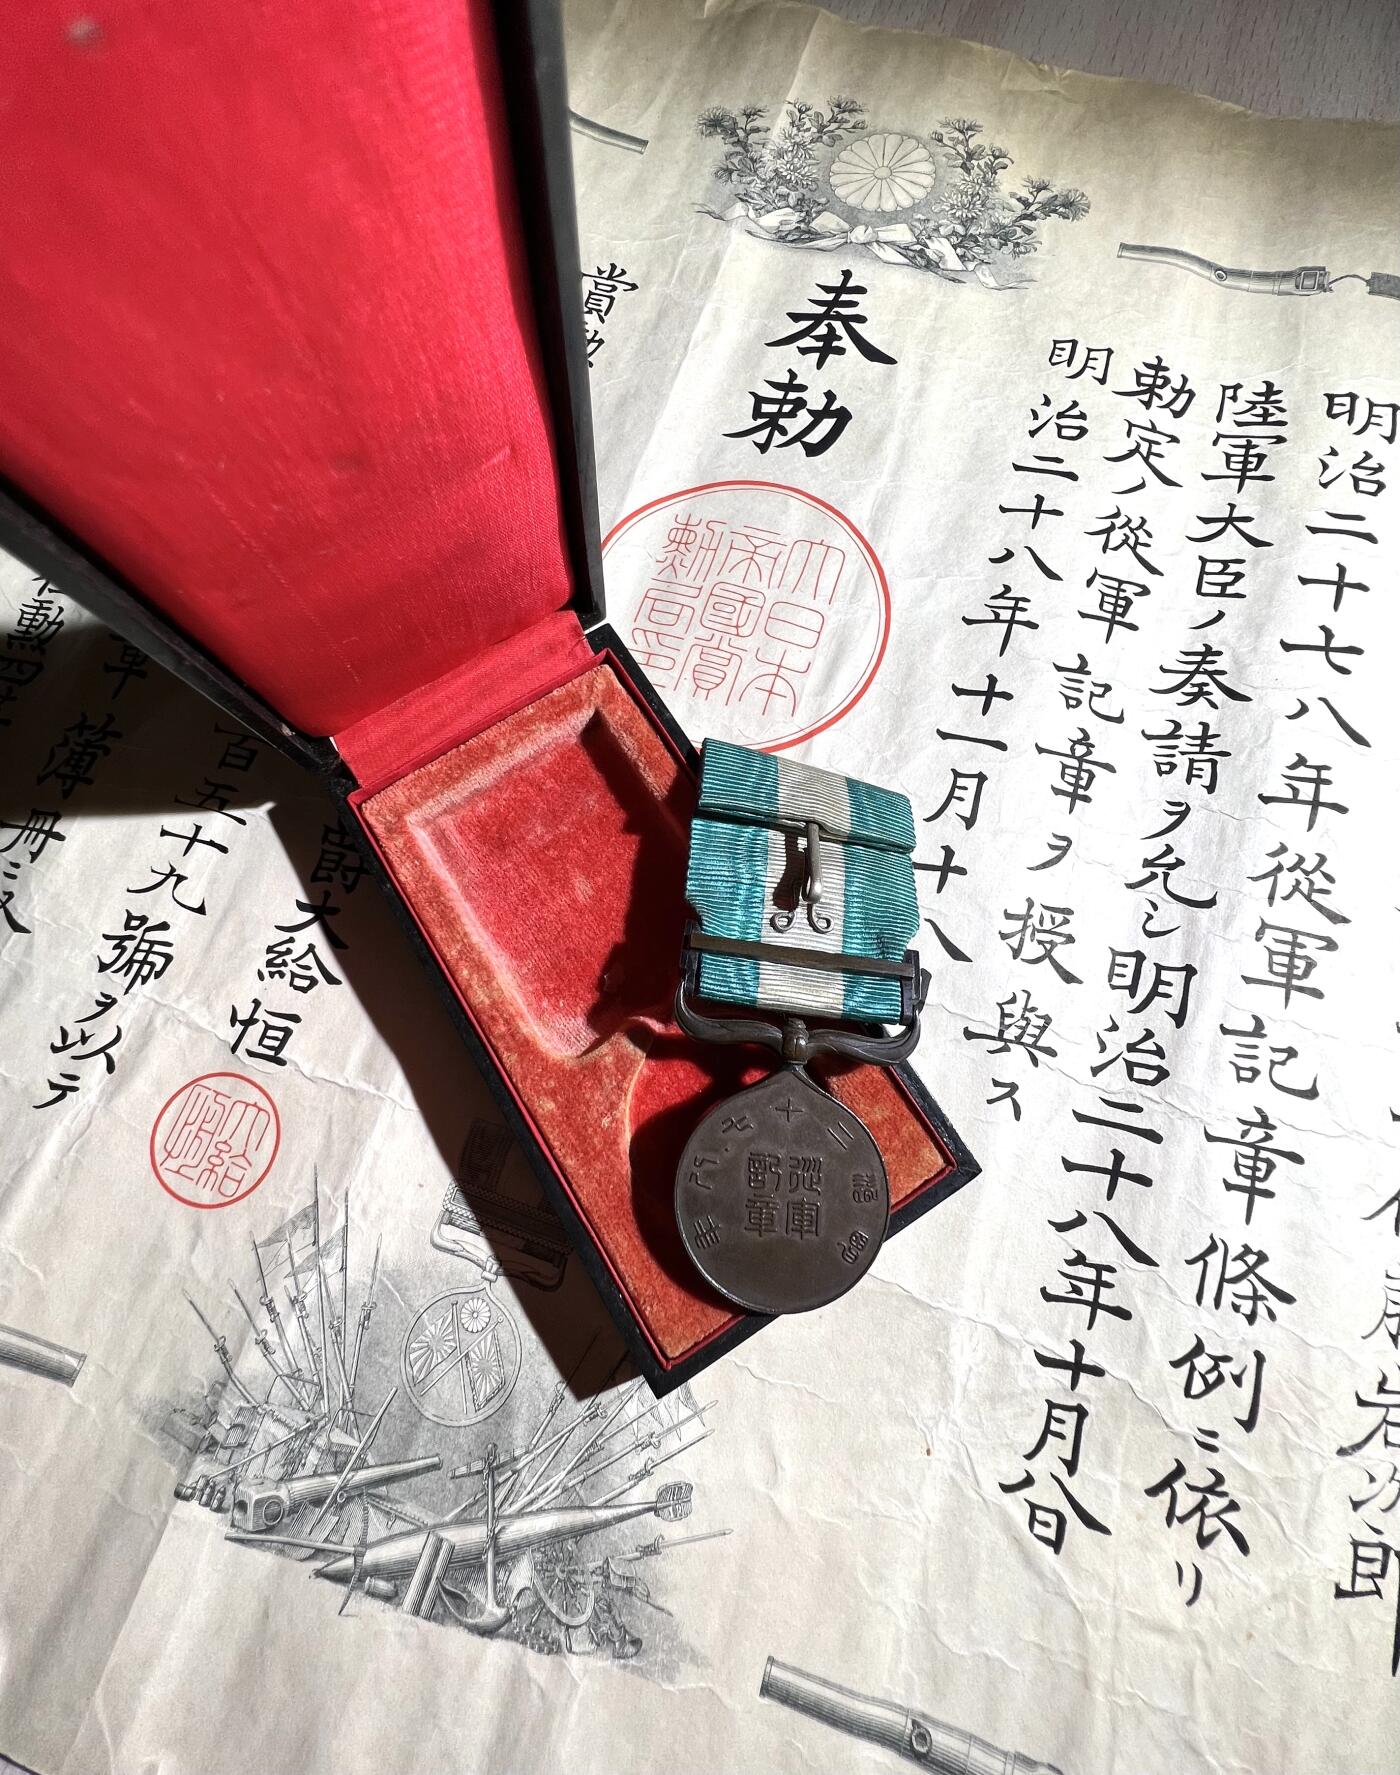 岩次郎
明治二十七八年從軍記章條例ニ依リ
陸軍大臣ノ奏請ヲ允シ明治二十八年十月八日
勅定ノ從軍記章ヲ授與ス
明治二十八年十一月十八
奉勅
大日本
帝國賞
勳局印
賞勲
爵大給恒
大給恒
百五十九號ヲ以テ
章簿冊ニ
勲四等
明治二十七八年
從軍
記章